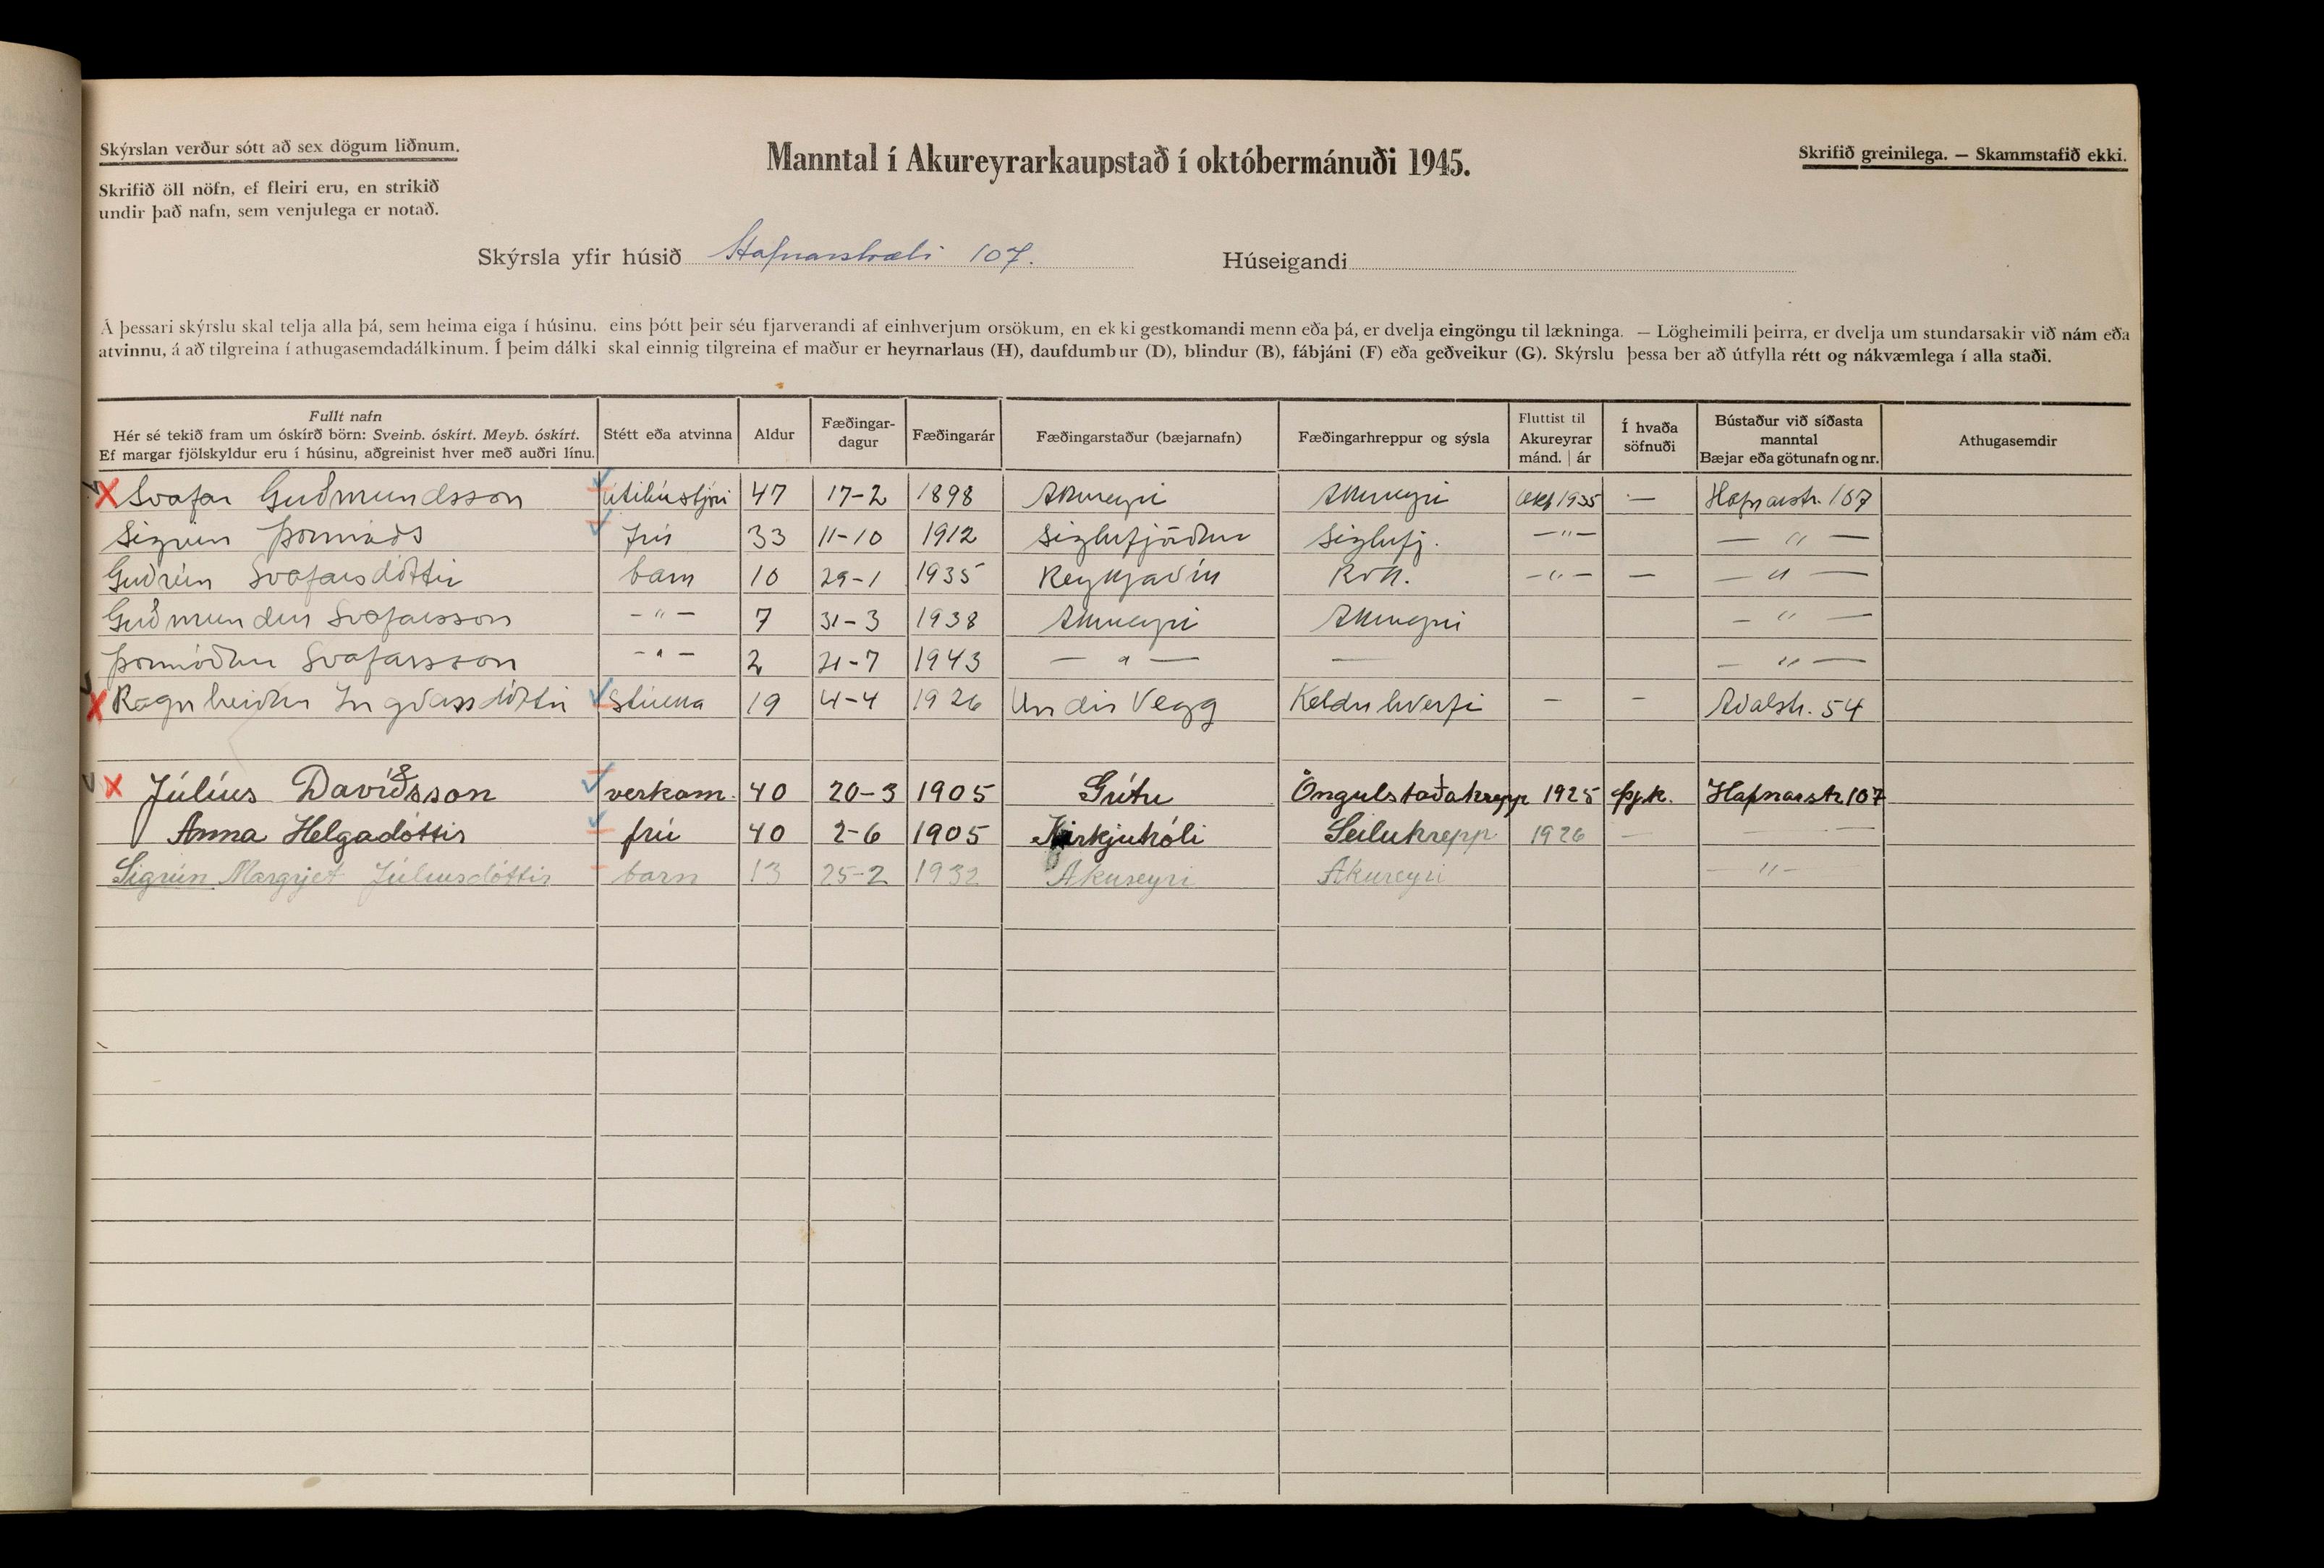 Skýrslan verður sótt að sex dögum liðnum.
Manntal í Akureyrarkaupstað í októbermánuði 1945.
Skrifið greinilega. — Skammstafið ekki.
Skrifið öll nöfn, ef fleiri eru, en strikið
undir það nafn, sem venjulega er notað.
Skýrsla yfir húsið Hafnarstræti 107. Húseigandi
Á þessari skýrslu skal telja alla þá, sem heima eiga í húsinu. eins þótt þeir séu fjarverandi af einhverjum orsökum, en ekki gestkomandi menn eða þá, er dvelja eingöngu til lækninga. — Lögheimili þeirra, er dvelja um stundarsakir við nám eða
atvinnu, á að tilgreina í athugasemdadálkinum. Í þeim dálki skal einnig tilgreina ef maður er heyrnarlaus (H), daufdumbur (D), blindur (B), fábjáni (F) eða geðveikur (G). Skýrslu þessa ber að útfylla rétt og nákvæmlega í alla staði.
Fullt nafn
Hér sé tekið fram um óskírð börn: Sveinb. óskírt. Meyb. óskírt.
Ef margar fjölskyldur eru í húsinu, aðgreinist hver með auðri línu.
Stétt eða atvinna
Aldur
Fæðingar-
dagur
Fæðingarár
Fæðingarstaður (bæjarnafn)
Fæðingarhreppur og sýsla
Fluttist til
Akureyrar
mánd. | ár
Í hvaða
söfnuði
Bústaður við síðasta
manntal
Bæjar eða götunafn og nr.
Athugasemdir
X Svafar Guðmundsson útibússtjóri 47 17-2 1898 Akureyri Akureyri Okt 1935 — Hafnarstr. 107
Sigrún Þormóðs frú 33 11-10 1912 Siglufjörður Siglufj. —"— — " —
Guðrún Svafarsdóttir barn 10 29-1 1935 Reykjavík Rvk. —"— — — " —
Guðmundur Svafarsson —"— 7 31-3 1938 Akureyri Akureyri — " —
Þormóður Svafarsson —"— 2 21-7 1943 — " — — — " —
X Ragnheiður Ingvarsdóttir stúlka 19 4-4 1926 Undir Vegg Kelduhverfi — — Aðalstr. 54
X Júlíus Davíðsson verkam. 40 20-3 1905 Grítu Öngulstaðahrepp 1925 þjk. Hafnarstr 107
Anna Helgadóttir frú 40 2-6 1905 Kirkjuhóli Seiluhrepp. 1926 — — —
Sigrún Margrjet Júlíusdóttir barn 13 25-2 1932 Akureyri Akureyri — " —